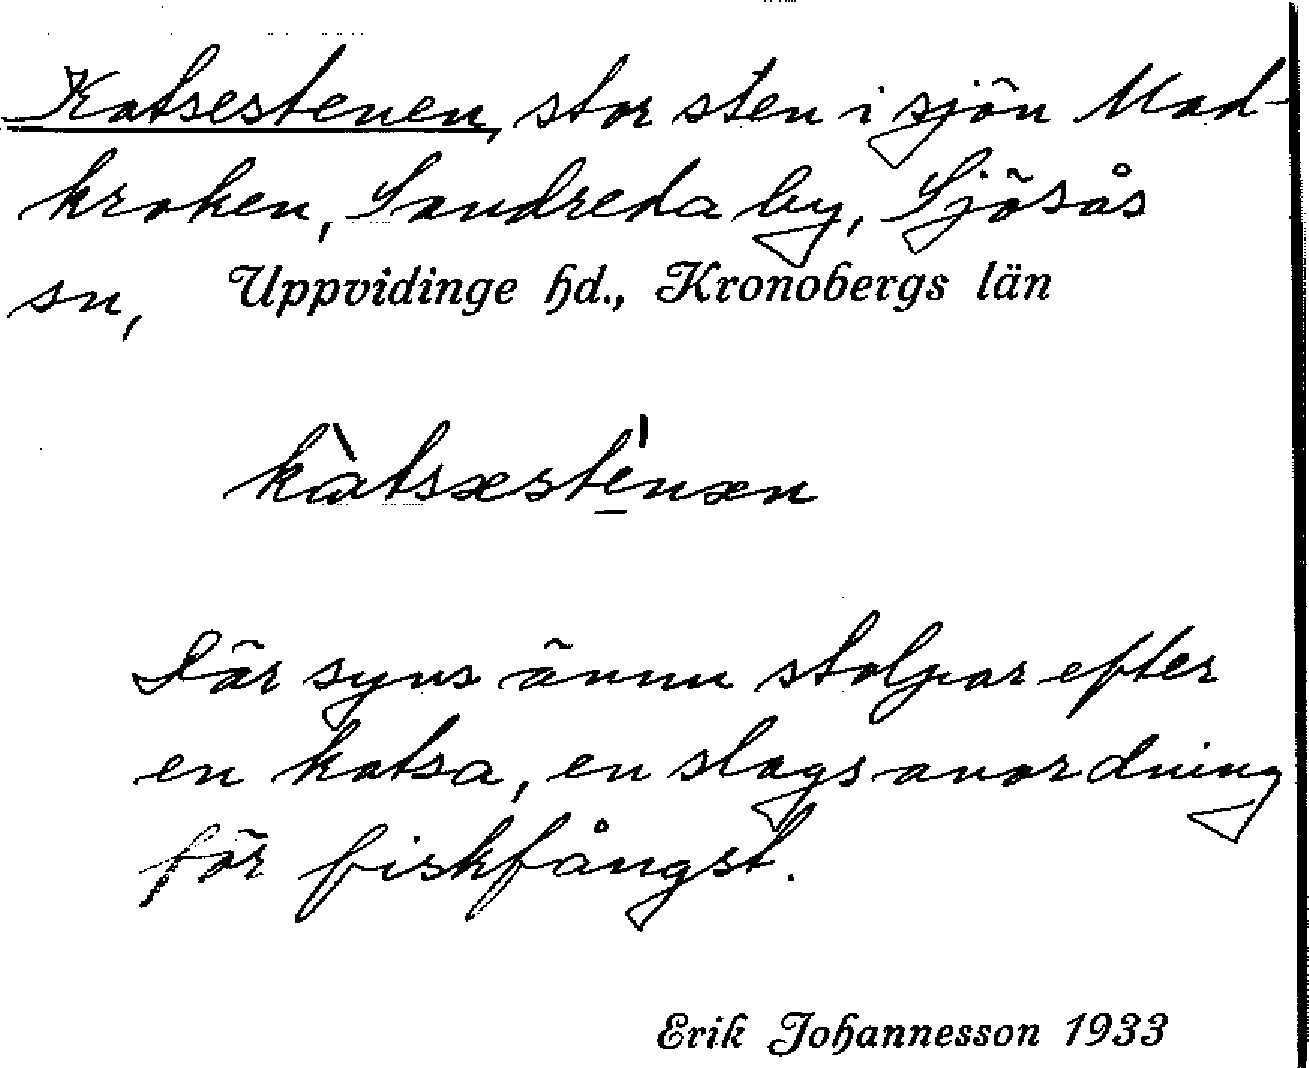 Katsestenen, stor sten i sjön Mad-
kroken, Sandreda by, Sjösås
sn, Uppvidinge hd., Kronobergs län
kàtsæsté̲næn
Där syns ännu stolpar efter
en katsa, en slags anordning
för fiskfångst.
Erik Johannesson 1933